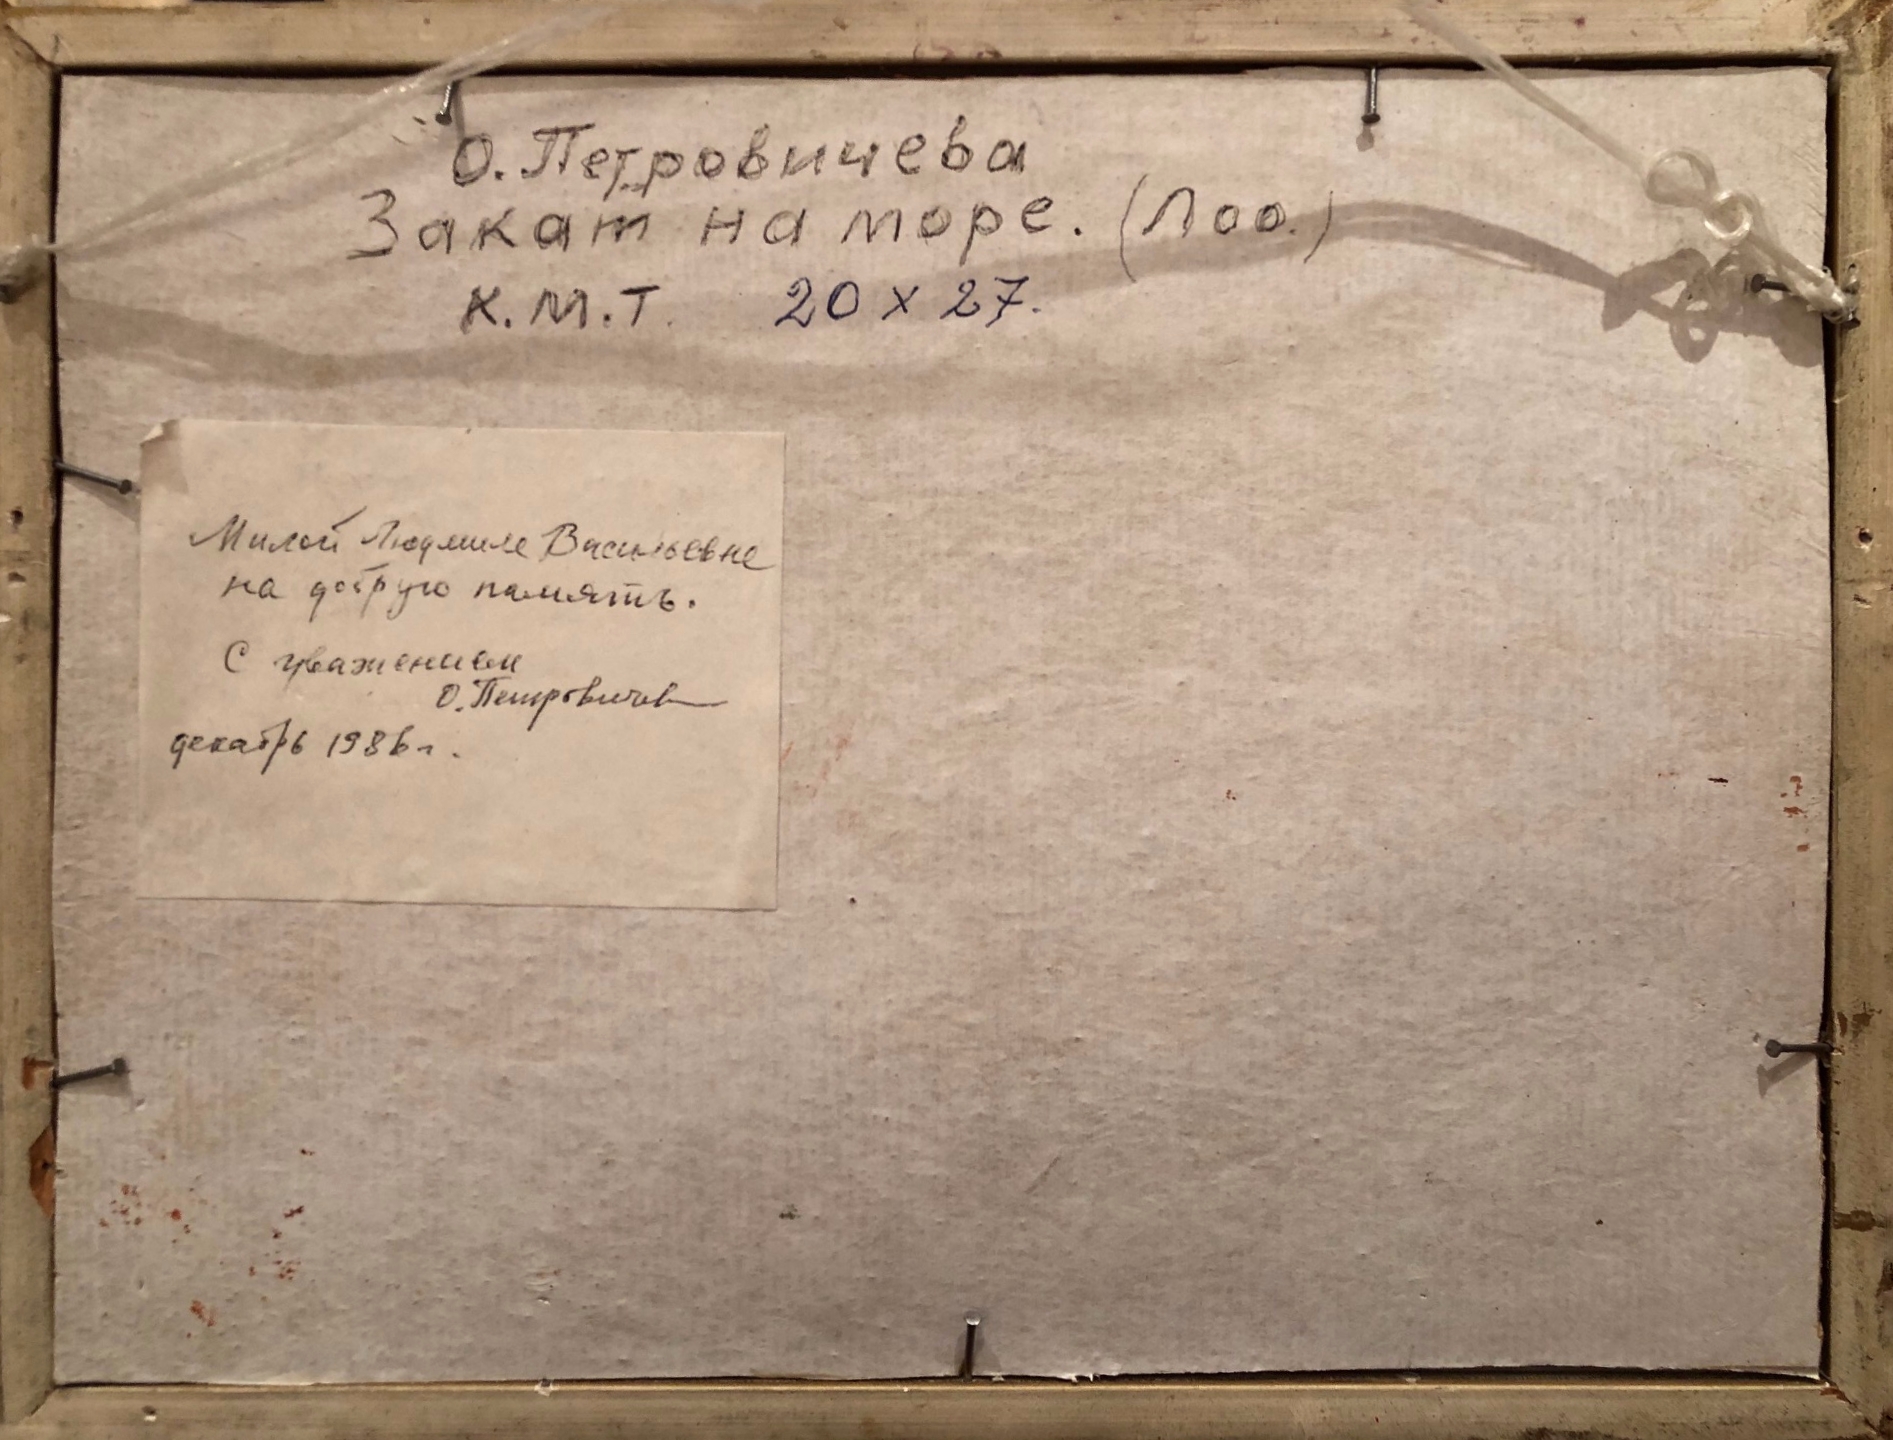 О. Петровичева
Закат на море. (Лоо.)
К.М.Т. 20 х 27.
Милой Людмиле Васильевне
на добрую память.
С уважением
О. Петровичева
декабрь 1986 г.